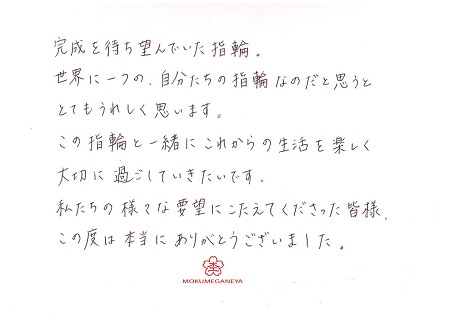 完成を待ち望んでいた指輪。
世界に一つの、自分たちの指輪なのだと思うと
とてもうれしく思います。
この指輪と一緒にこれからの生活を楽しく
大切に過ごしていきたいです。
私たちの様々な要望にこたえてくださった皆様、
この度は本当にありがとうございました。
MOKUMEGANEYA